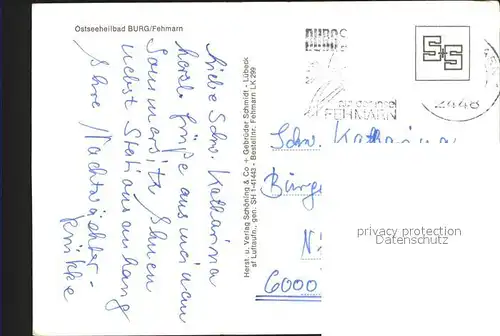 Ostseeheilbad BURG/Fehmarn
Liebe Schw. Katharina
herzl. Grüße aus meinem
Sommersitz Ihnen
nebst Stationsanhang
Ihre Nachtwächter-
Herst. u. Verlag Schöning & Co + Gebrüder Schmidt - Lübeck
af Luftaufn., gen. SH 1-41443 - Bestellnr. Fehmarn LK 299
BURG
auf der Insel
FEHMARN
S+S
2448
Schw. Katharina
Bürge
N
6000
privacy protection
Datenschutz